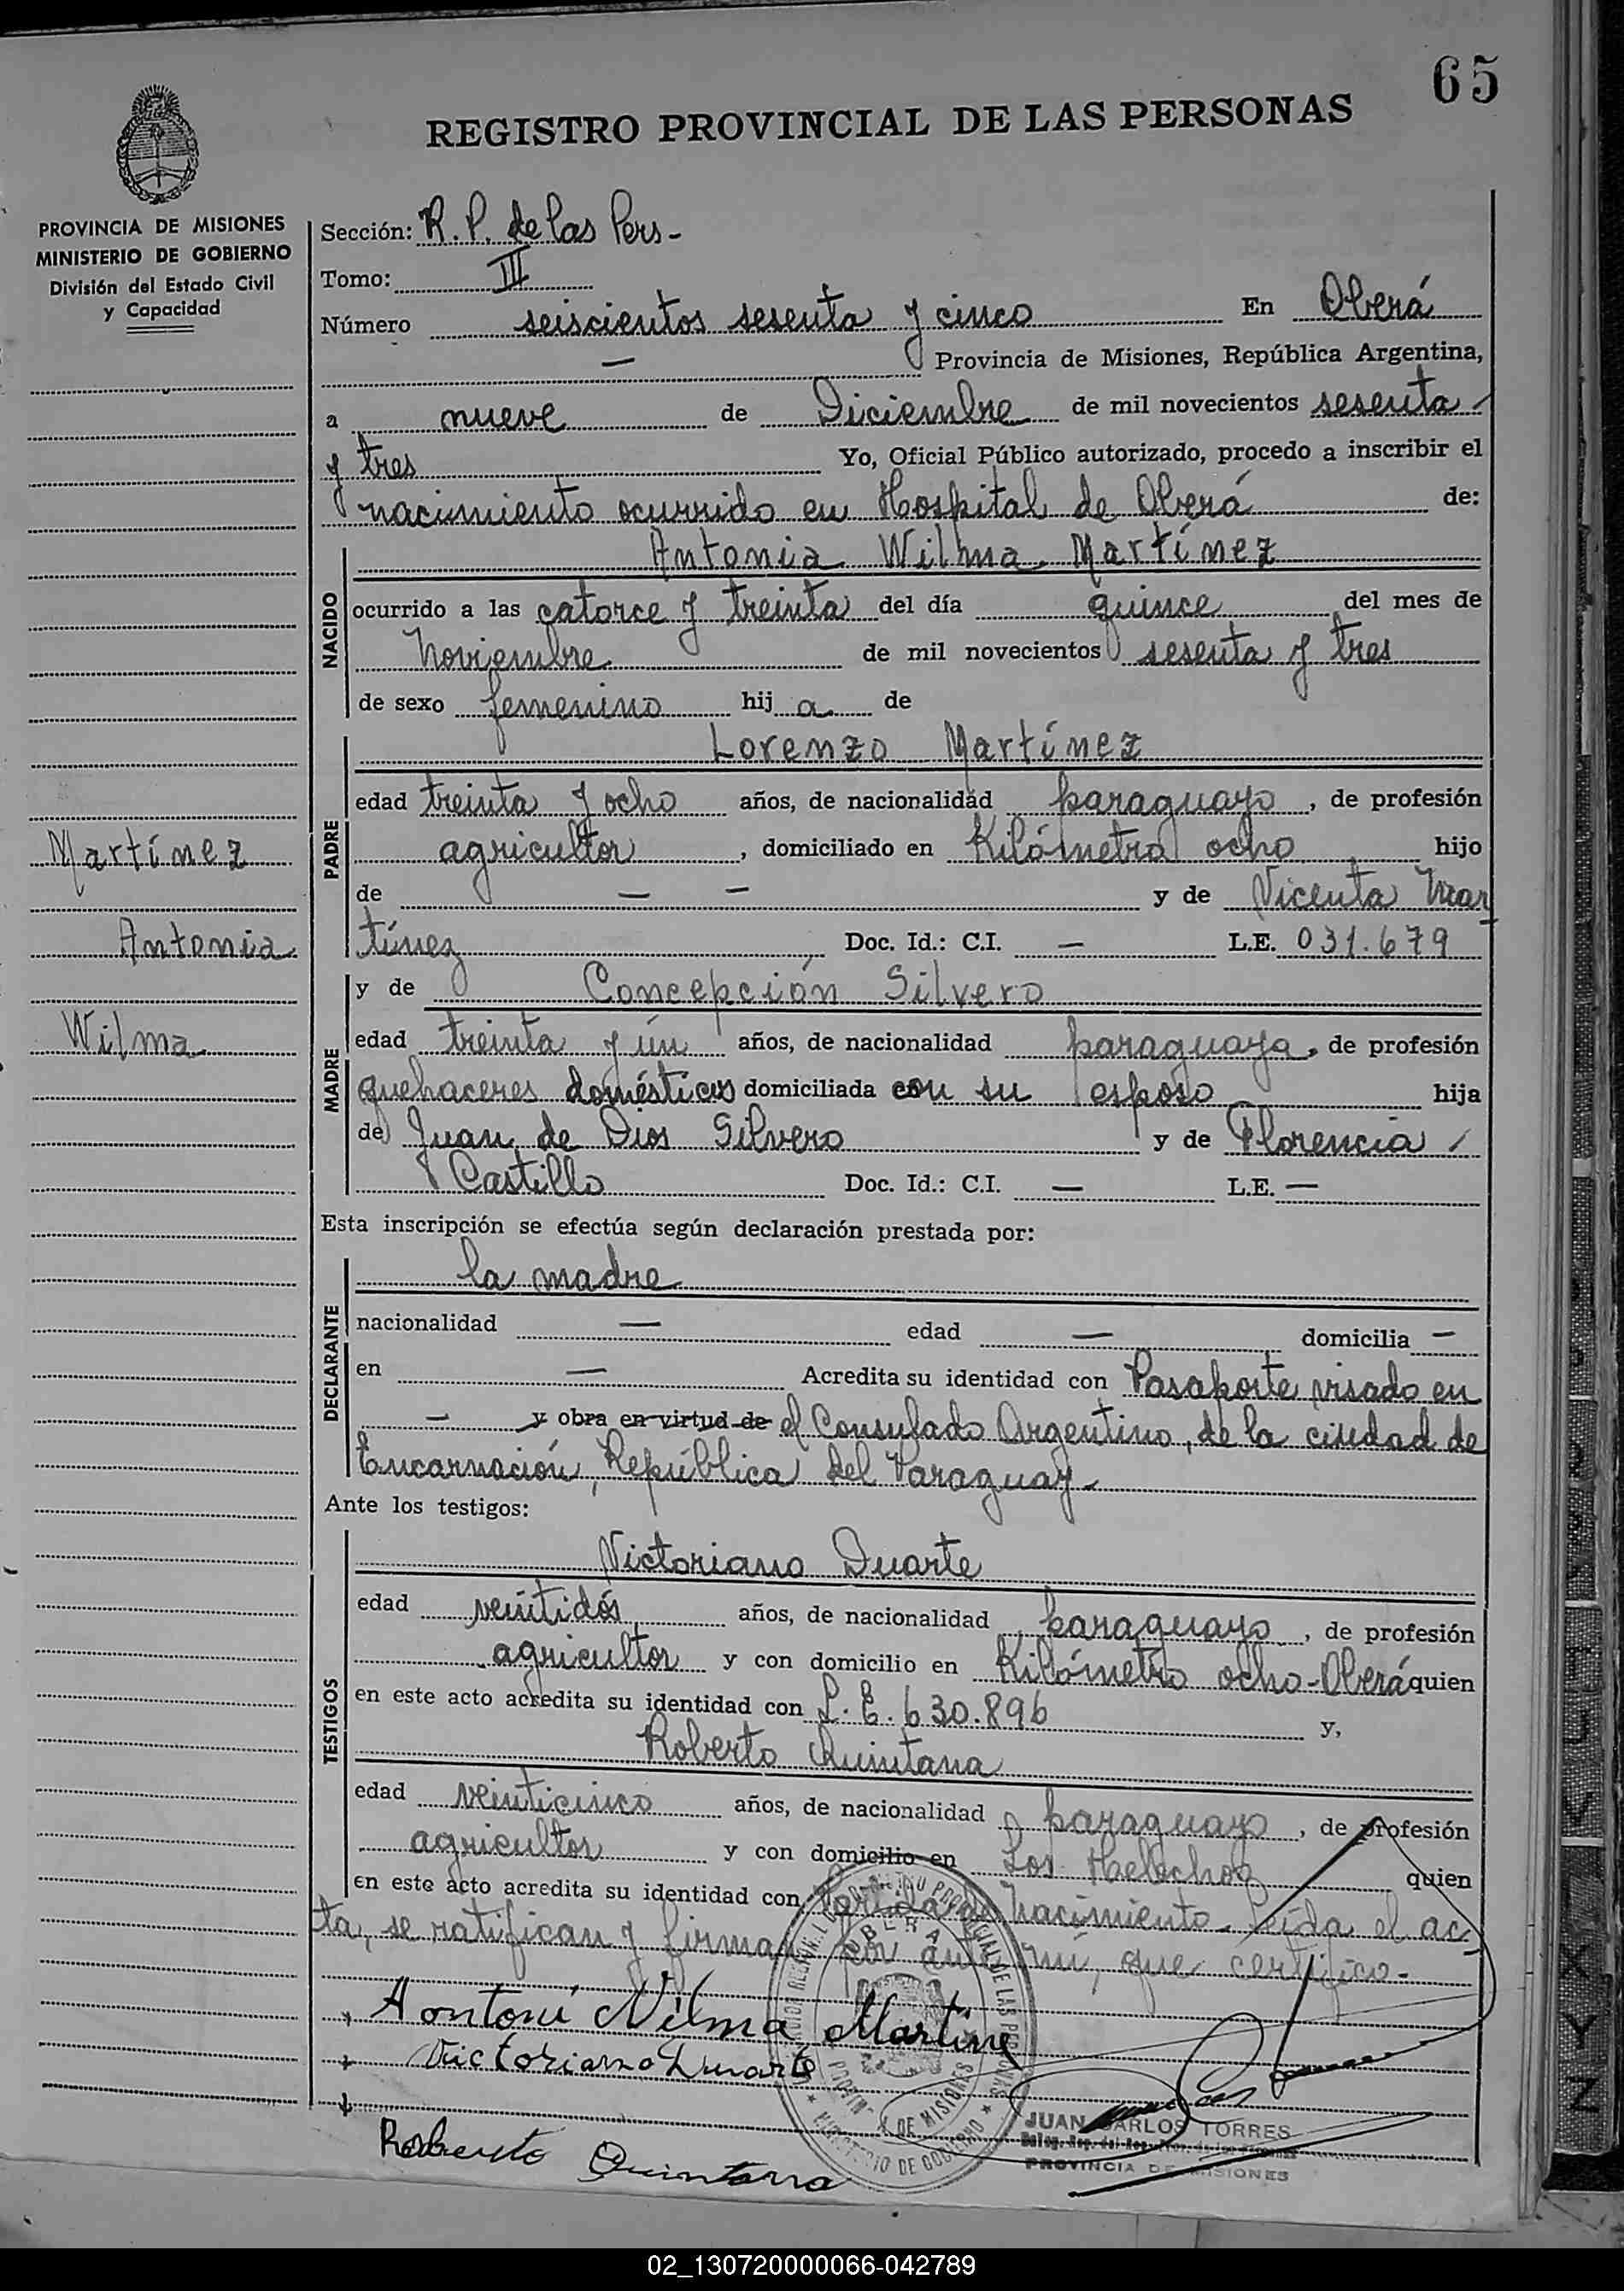 65
REGISTRO PROVINCIAL DE LAS PERSONAS
PROVINCIA DE MISIONES
MINISTERIO DE GOBIERNO
División del Estado Civil
y Capacidad
Sección: R. P. de las Pers-
Tomo: III
Número seiscientos sesenta y cinco En Oberá
— Provincia de Misiones, República Argentina,
a nueve de Diciembre de mil novecientos sesenta
y tres Yo, Oficial Público autorizado, procedo a inscribir el
nacimiento ocurrido en Hospital de Oberá de:
NACIDO
Antonia Wilma Martínez
ocurrido a las catorce y treinta del día quince del mes de
Noviembre de mil novecientos sesenta y tres
de sexo femenino hij a de
PADRE
Lorenzo Martínez
edad treinta y ocho años, de nacionalidad paraguayo, de profesión
agricultor, domiciliado en Kilómetro ocho hijo
de — — y de Vicenta Mar
tínez Doc. Id.: C.I. — L.E. 031.679
Martínez
Antonia
Wilma
MADRE
y de Concepción Silvero
edad treinta y ún años, de nacionalidad paraguaya, de profesión
quehaceres domésticos domiciliada con su esposo hija
de Juan de Dios Silvero y de Florencia
Castillo Doc. Id.: C.I. — L.E. —
Esta inscripción se efectúa según declaración prestada por:
DECLARANTE
la madre
nacionalidad — edad — domicilia —
en — Acredita su identidad con Pasaporte visado en
— y obra en virtud de el Consulado Argentino, de la ciudad de
Encarnación, República del Paraguay-
Ante los testigos:
TESTIGOS
Victoriano Duarte
edad veintidós años, de nacionalidad paraguayo, de profesión
agricultor y con domicilio en Kilómetro ocho-Oberá quien
en este acto acredita su identidad con L. E. 630.896 y,
Roberto Quintana
edad veinticinco años, de nacionalidad paraguayo, de profesión
agricultor y con domicilio en Los Helechos quien
en este acto acredita su identidad con Partida de Nacimiento- Leída el ac-
ta, se ratifican y firman por ante mí, que certifico-
Aontoní Nilma Martine
Victoriano Duarte
Roberto Quintana
OBERA
PROVINCIA DE MISIONES
MINISTERIO DE GOBIERNO
JUAN CARLOS TORRES
PROVINCIA DE MISIONES
02_130720000066-042789